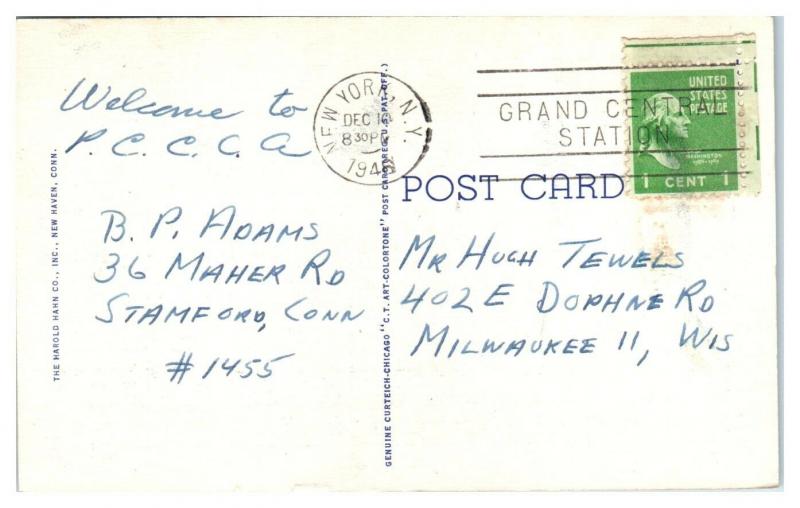 Welcome to
P.C.C.C.A
B. P. ADAMS
36 MAHER RD
STAMFORD, CONN
#1455
THE HAROLD HAHN CO., INC., NEW HAVEN, CONN.
GENUINE CURTEICH-CHICAGO "C.T. ART-COLORTONE" POST CARD (REG. U.S. PAT. OFF.)
NEW YORK, N.Y.
DEC
8 30 PM
GRAND CENTRAL
STATION
UNITED
STATES
POSTAGE
WASHINGTON
1 CENT 1
POST CARD
MR HUGH TEWELS
402 E DOPHNE RD
MILWAUKEE 11, WIS